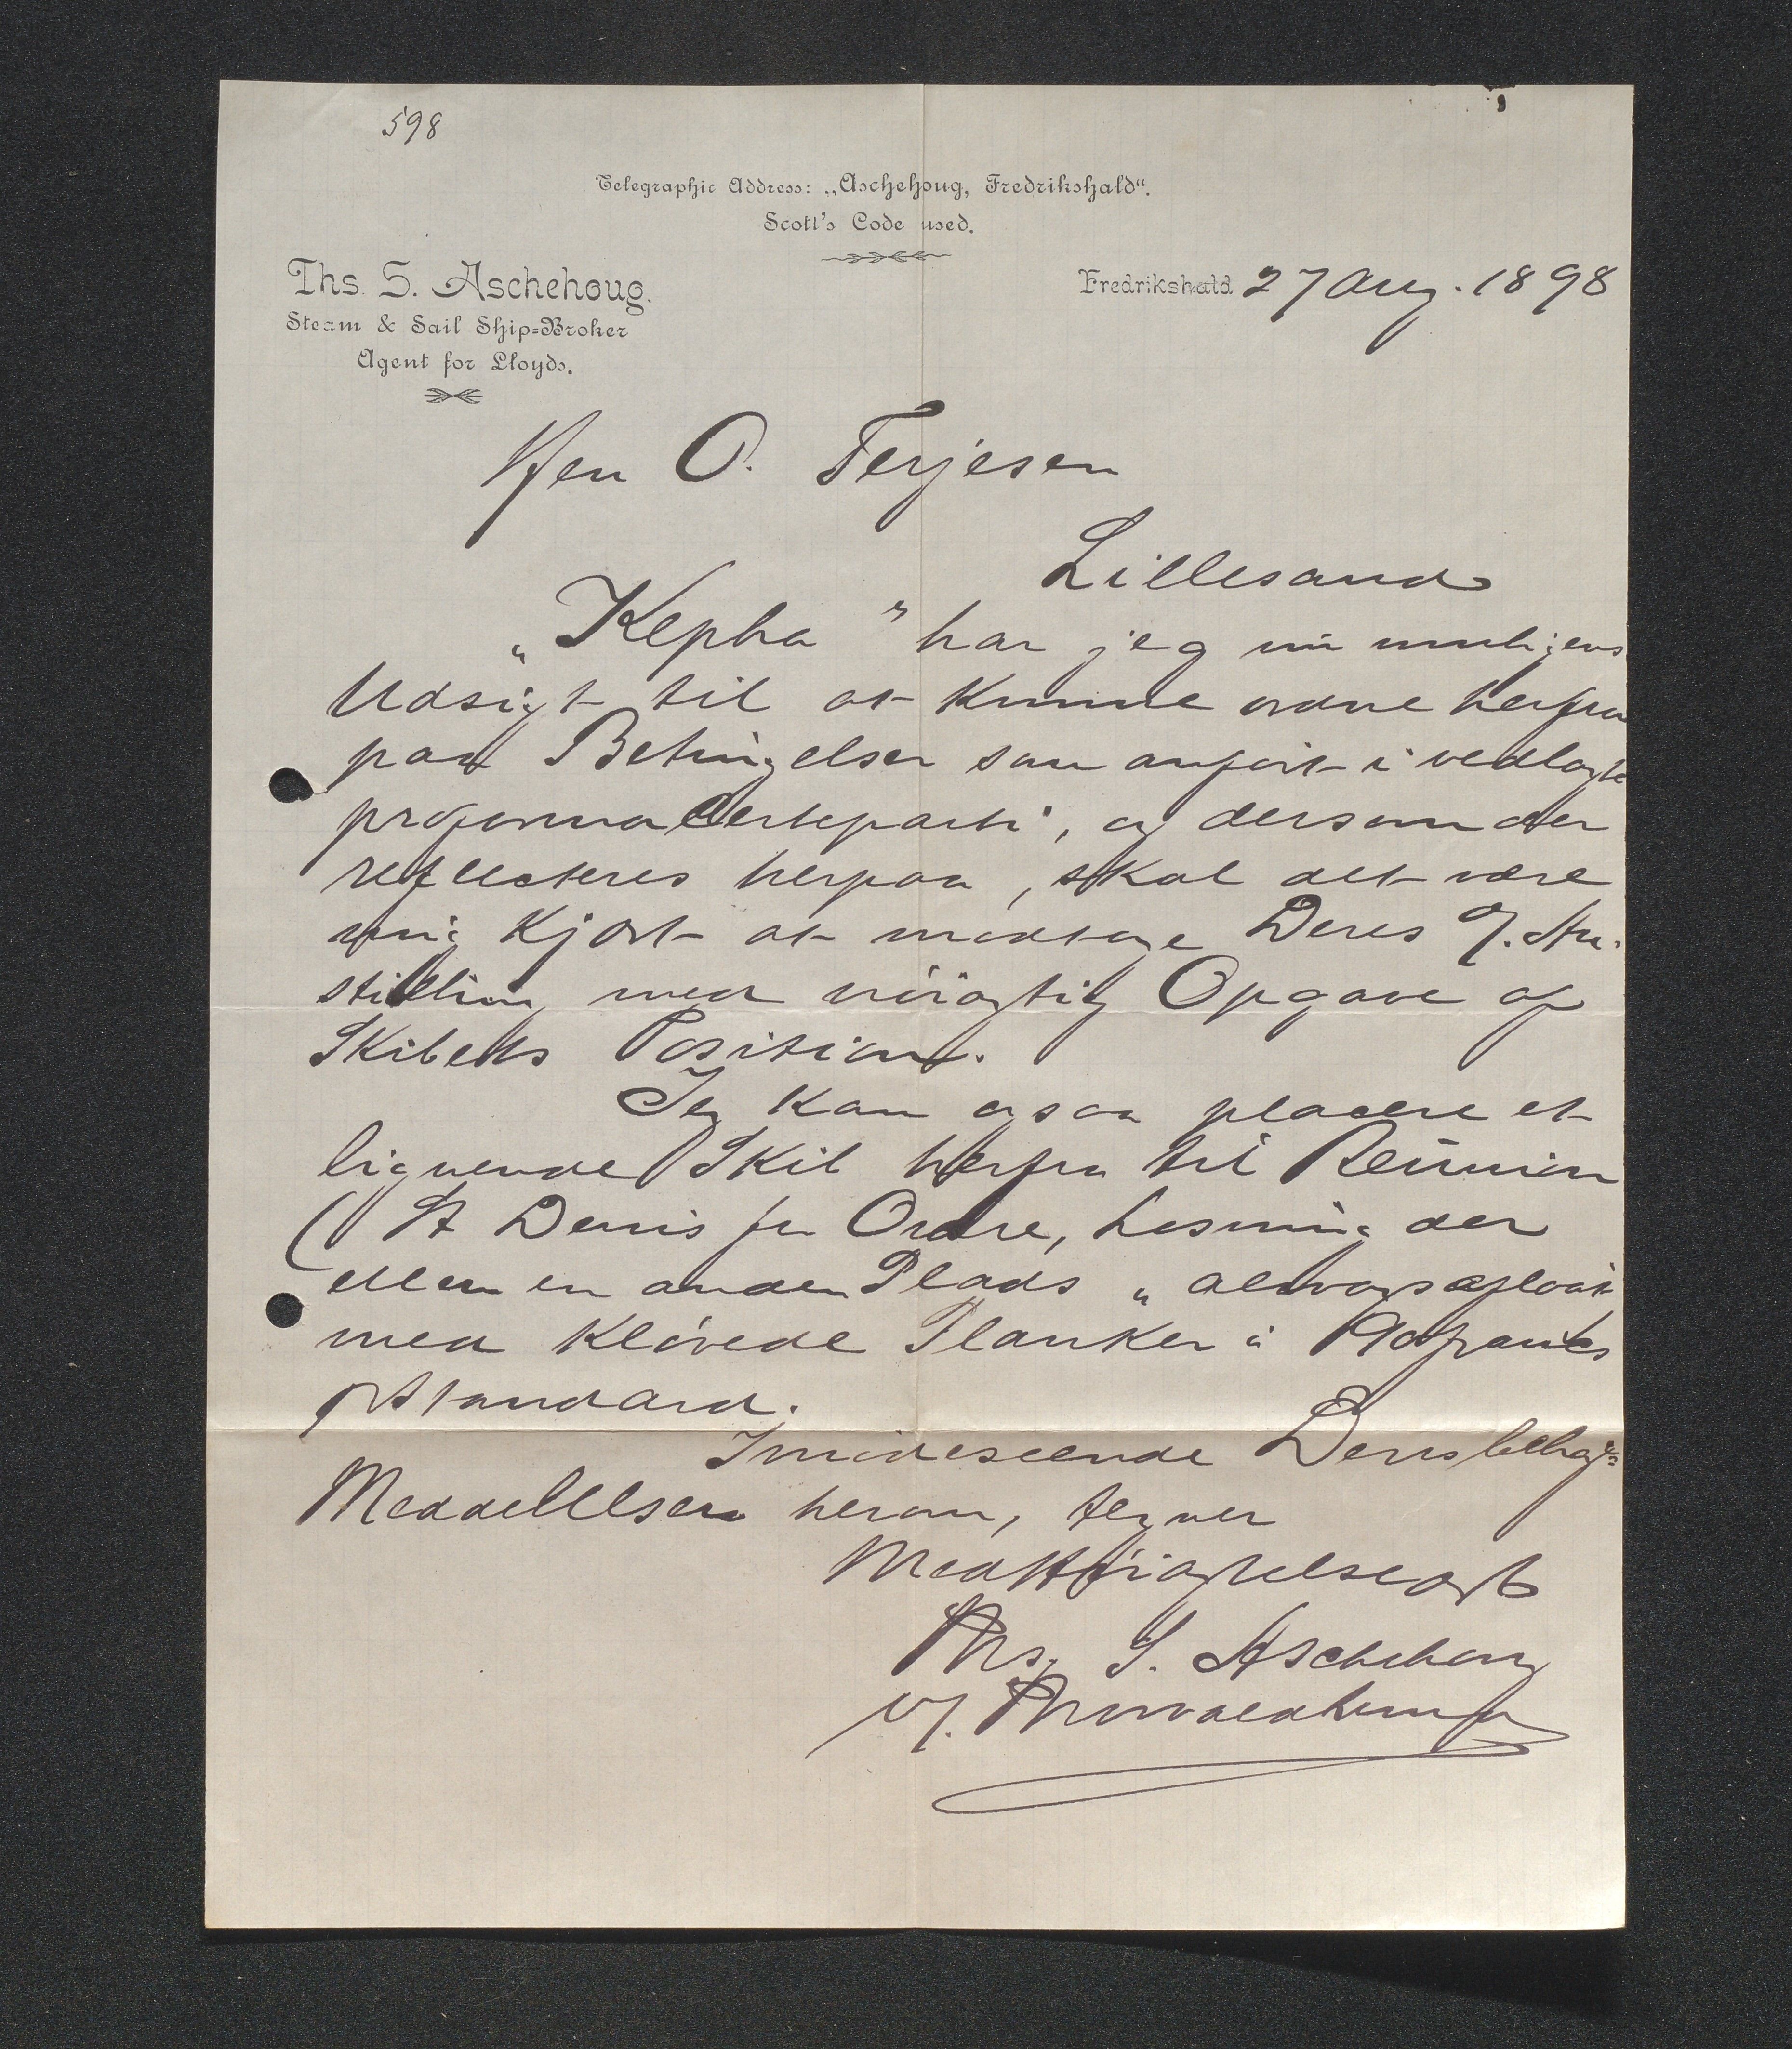 598
Telegraphic Address: „Aschehoug, Fredrikshald“.
Scott's Code used.
Ths. S. Aschehoug.
Steam & Sail Ship=Broker
Agent for Lloyds.
Fredrikshald 27 Aug. 1898
Herr O. Terjesen
Lillesand
„Kepha" har jeg nu muligens
Udsigt til at kunne ordne herfra
paa Betingelser som anført i vedlagte
proforma Certeparti, og dersom der
reflecteres herpaa, skal det være
mig kjært at modtage Deres
stilling med nøiagtig Opgave af
Skibets Position.
Jeg kan ogsaa placere et
lignende Skib herfra til Reunion
(St Denis for Ordre, Losning der
eller en anden Plads „ always afloat
med kløvede Planker à 190 francs
pr Standard.
Imødeseende Deres behage
Meddelelser herom, tegner
Med Høiagtelse
Ths. S. Aschehoug